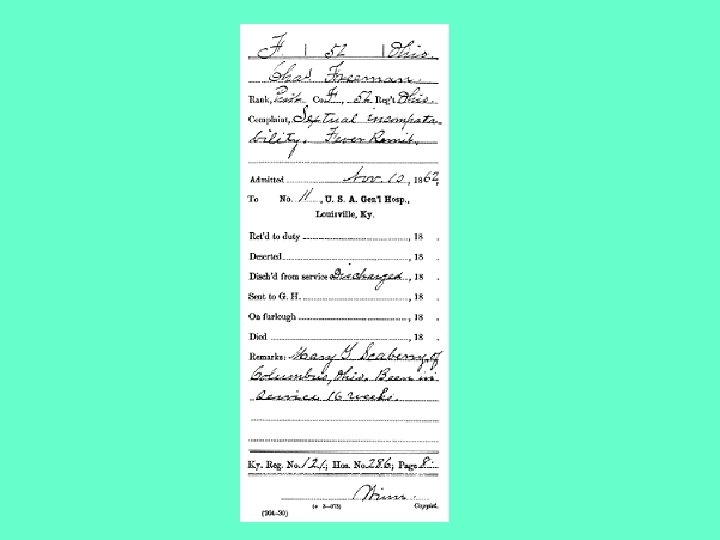 F | 52 | Ohio.
Chas Freeman
Rank, Pvt. Co. F, 52 Reg't Ohio.
Complaint, Sextual incompata
bility. Fever Remit.
Admitted Nov. 10, 1862,
To No. 11, U. S. A. Gen'l Hosp.,
Louisville, Ky.
Ret'd to duty , 18 .
Deserted , 18 .
Disch'd from service Discharged , 18 .
Sent to G. H. , 18 .
On furlough , 18 .
Died , 18 .
Remarks: Mary Y Scaberry, of
Columbus, Ohio. Been in
service 16 weeks.
Ky. Reg. No. 121; Hos. No. 286; Page 8
(204-50) (o 3-073) Copyist.